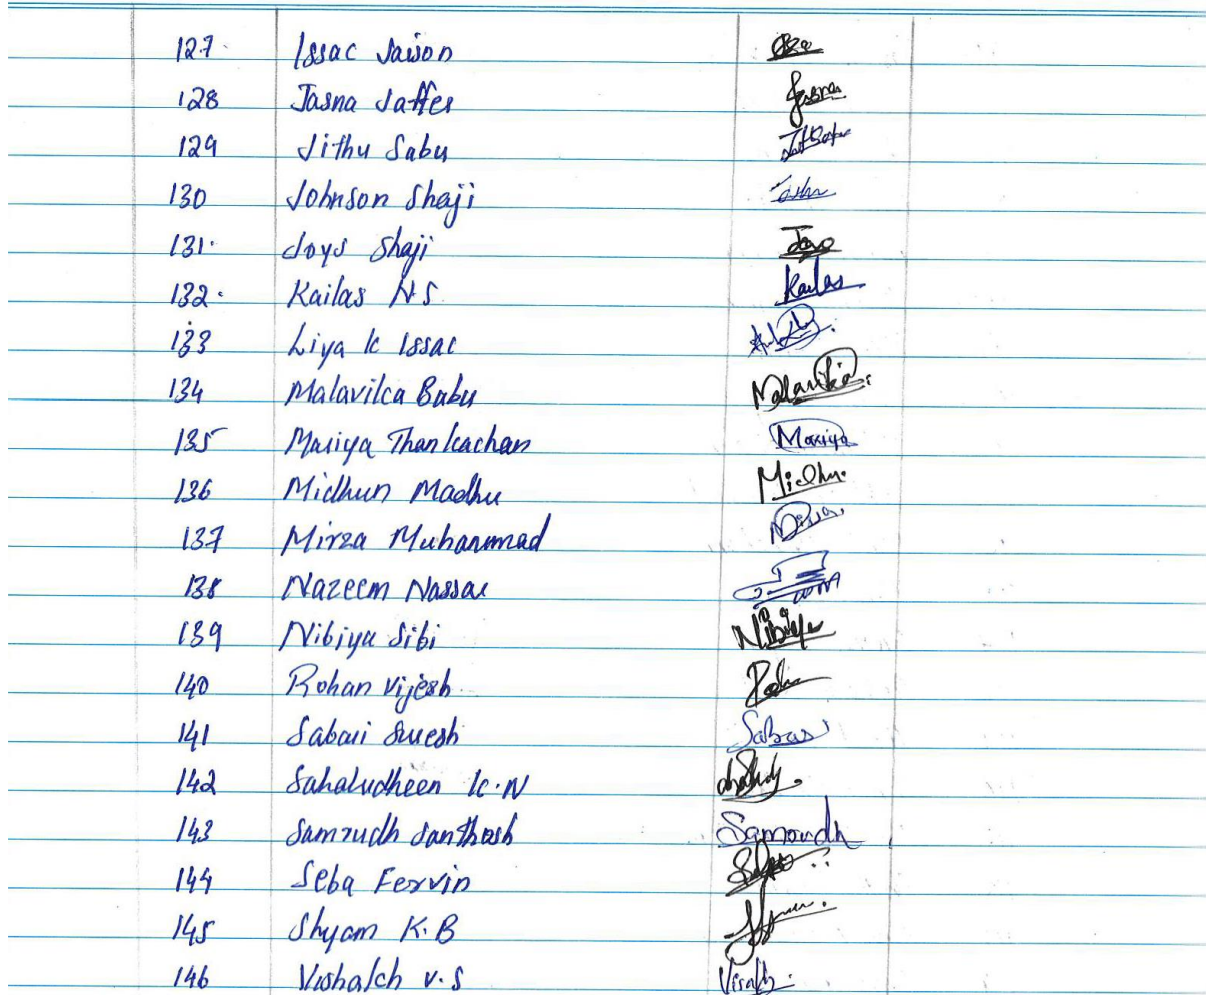 127. Issac Jaison
128 Jasna Jaffer Jasna
129 Jithu Sabu
130 Johnson Shaji
131. Joys Shaji
132. Kailas N S Kailas
133 Liya K Issac
134 Malavika Babu Malavika
135 Mariya Thankachan Mariya
136 Midhun Madhu Midhu
137 Mirza Muhammad
138 Nazeem Nassar
139 Nibiya Sibi Nibiya
140 Rohan Vijesh
141 Sabari Suresh
142 Sahaludheen K.N
143 Samrudh Santhosh Samrudh
144 Seba Fervin
145 Shyam K.B
146 Vishakh V.S